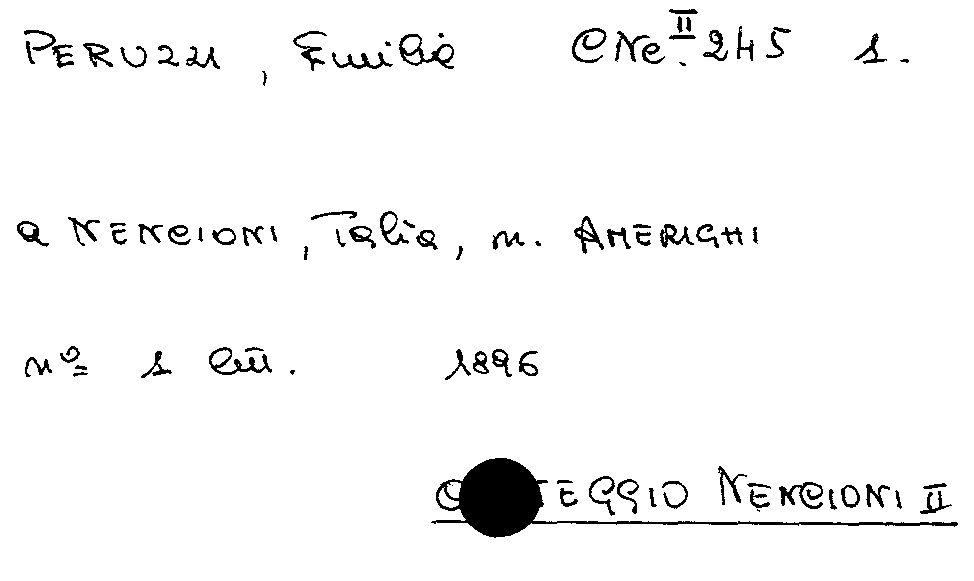 PERUZZI, Emilia CNe.II 245 1.
a NENCIONI, Talia, n. AMERIGHI
nº 1 lett. 1896
C TEGGIO NENCIONI II